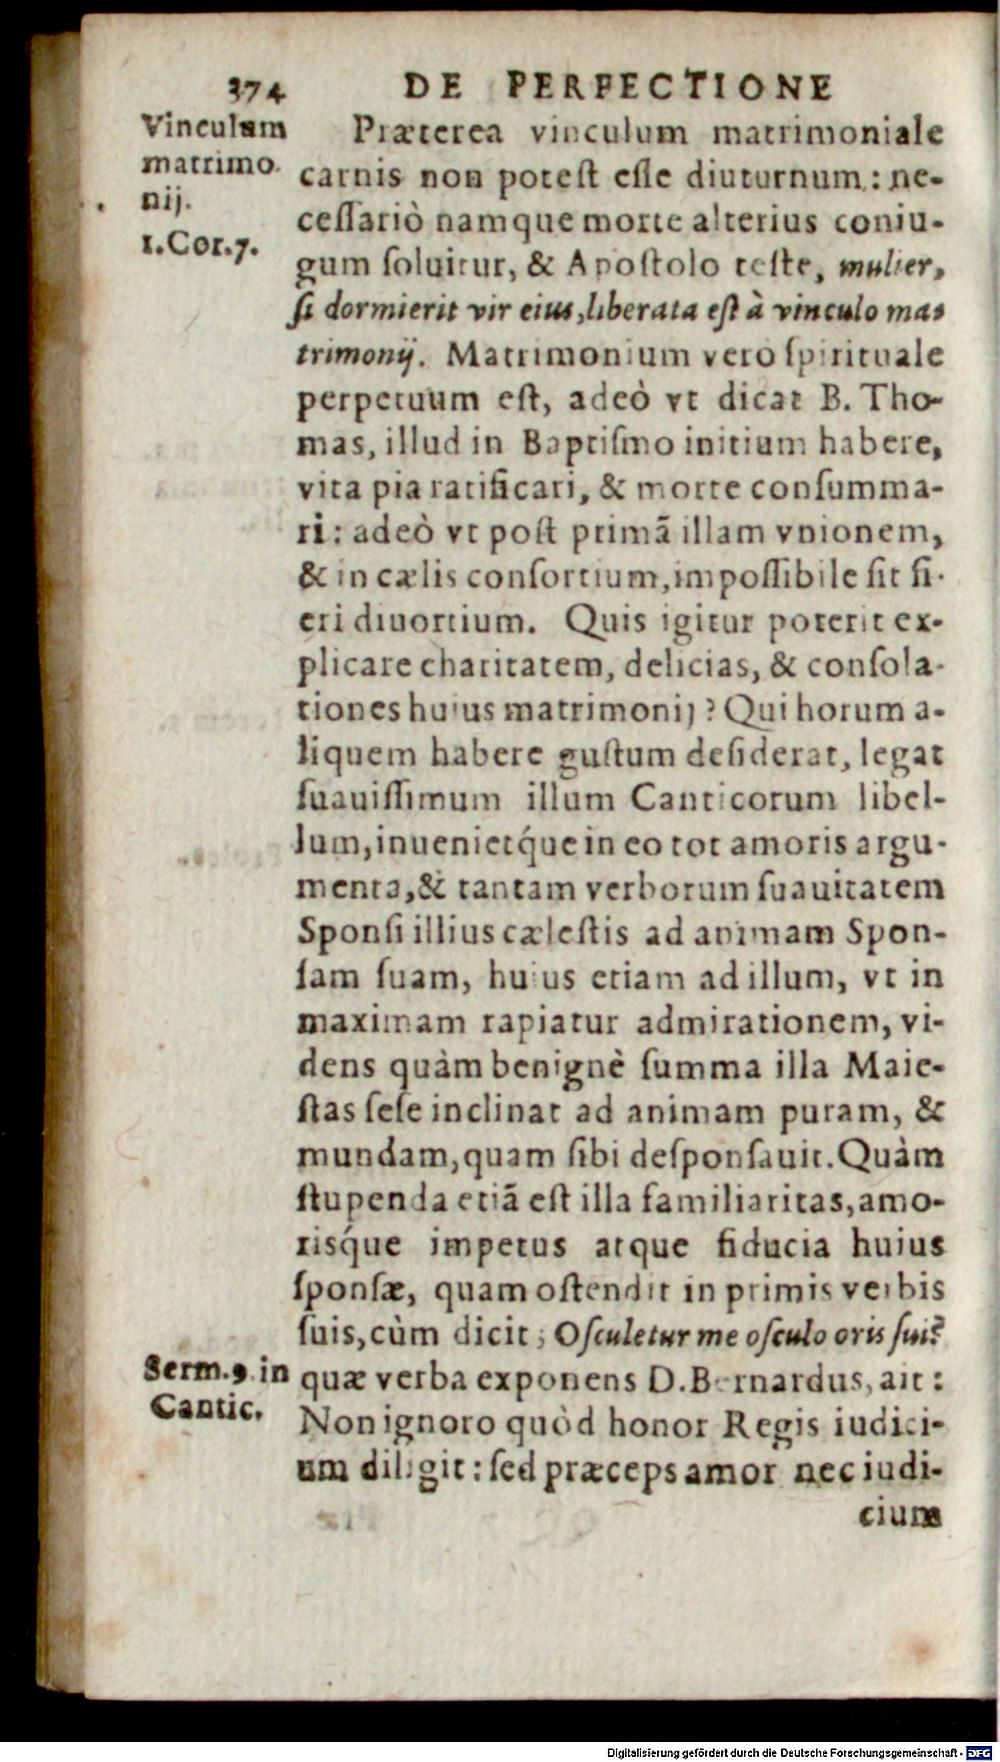 374 DE PERFECTIONE
Vinculum
matrimo
nij.
1.Cor.7.
Præterea vinculum matrimoniale
carnis non potest esse diuturnum: ne-
cessariò namque morte alterius coniu-
gum soluitur, & Apostolo teste, mulier,
si dormierit vir eius, liberata est à vinculo ma-
trimonij. Matrimonium vero spirituale
perpetuum est, adeò vt dicat B. Tho-
mas, illud in Baptismo initium habere,
vita pia ratificari, & morte consumma-
ri: adeò vt post primã illam vnionem,
& in cælis consortium, impossibile sit fi-
eri diuortium. Quis igitur poterit ex-
plicare charitatem, delicias, & consola-
tiones huius matrimonij? Qui horum a-
liquem habere gustum desiderat, legat
suauissimum illum Canticorum libel-
lum, inuenietq́ue in eo tot amoris argu-
menta, & tantam verborum suauitatem
Sponsi illius cælestis ad animam Spon-
sam suam, huius etiam ad illum, vt in
maximam rapiatur admirationem, vi-
dens quàm benignè summa illa Maie-
stas sese inclinat ad animam puram, &
mundam, quam sibi desponsauit. Quàm
stupenda etiã est illa familiaritas, amo-
risq́ue impetus atque fiducia huius
sponsæ, quam ostendit in primis verbis
suis, cùm dicit; Osculetur me osculo oris sui?
Serm.9.in
Cantic.
quæ verba exponens D. Bernardus, ait:
Non ignoro quòd honor Regis iudici-
um diligit: sed præceps amor nec iudi-
cium
Digitalisierung gefördert durch die Deutsche Forschungsgemeinschaft - DFG